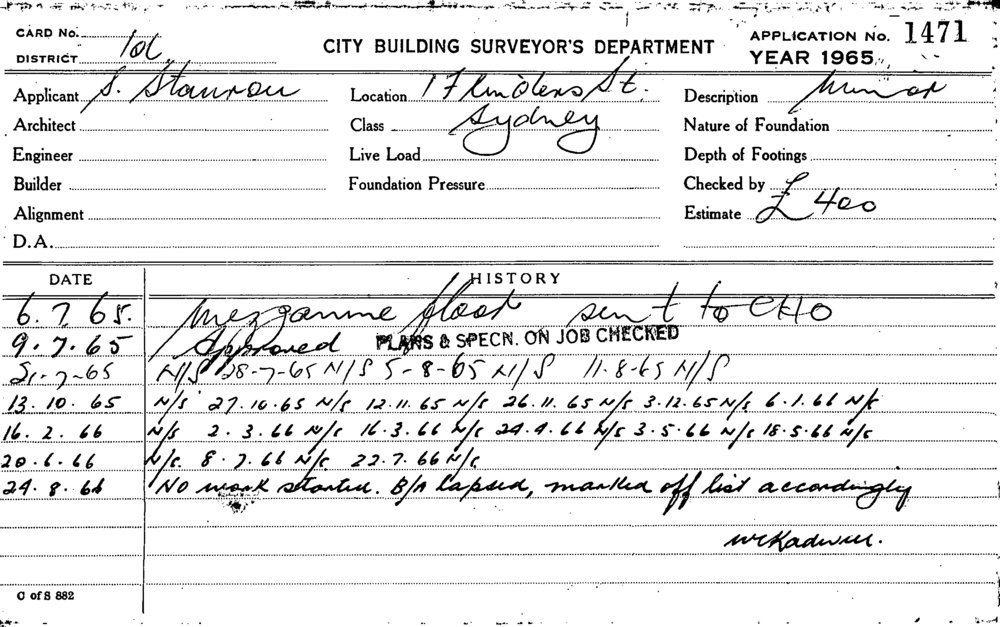 CARD No:
DISTRICT 10L
CITY BUILDING SURVEYOR'S DEPARTMENT
APPLICATION No. 1471
YEAR 1965
Applicant S.
Location 1 Flinders St.
Description Minor
Architect
Class Sydney
Nature of Foundation
Engineer
Live Load
Depth of Footings
Builder
Foundation Pressure
Checked by
Alignment
Estimate £400
D.A.
DATE HISTORY
6.7.65. Mezzanine floor sent to CHO
9.7.65 Approved PLANS & SPECN. ON JOB CHECKED
21-7-65 N/S 28-7-65 N/S 5-8-65 N/S 11-8-65 N/S
13.10.65 N/S 27.10.65 N/S 12.11.65 N/S 26.11.65 N/S 3.12.65 N/S 6.1.66 N/S
16.2.66 N/S 2.3.66 N/S 16.3.66 N/S 29.4.66 N/S 3.5.66 N/S 18.5.66 N/S
20.6.66 N/S. 8.7.66 N/S. 22.7.66 N/S.
29.8.66 No work started. B/A lapsed, marked off list accordingly
C of S 882